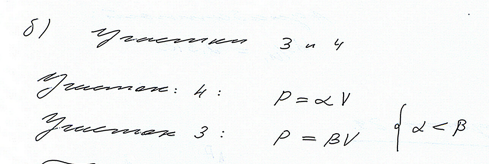 б) Участки 3 и 4
Участок: 4: P = αV
Участок 3: P = βV { α < β